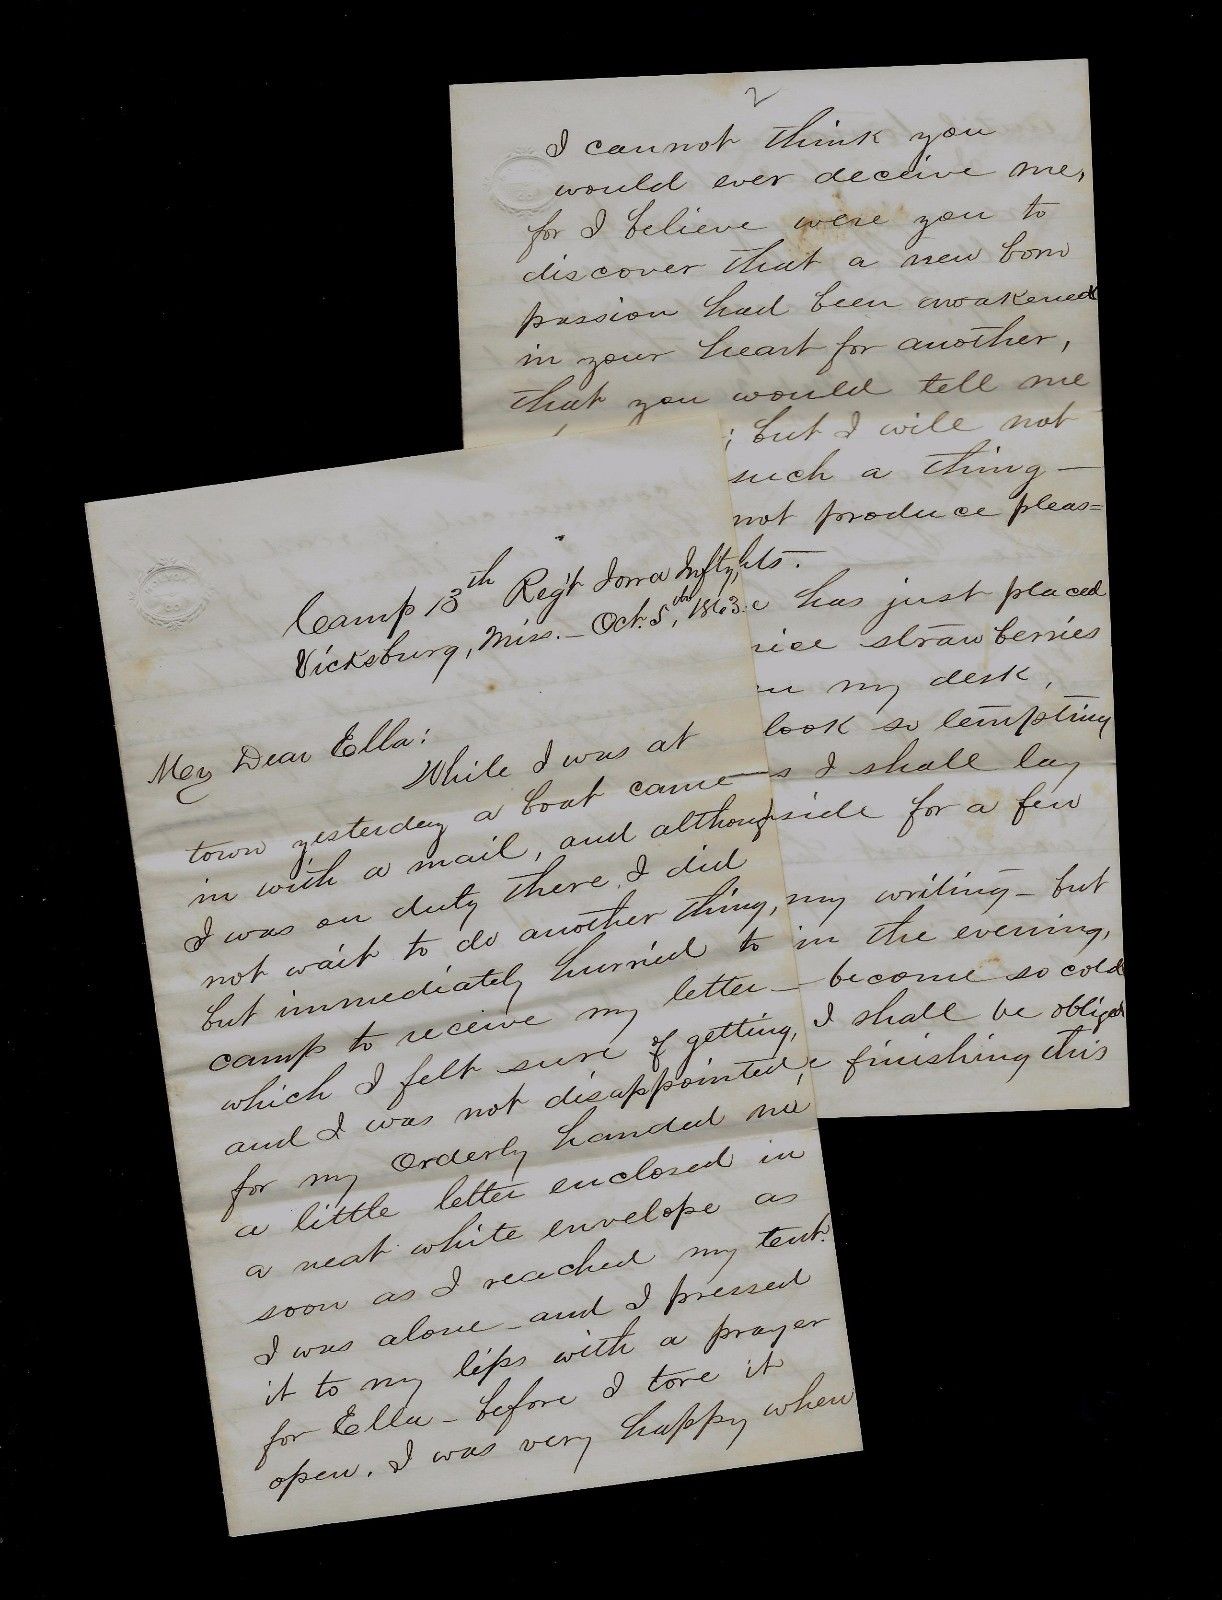 Camp 13th Reg't Iowa Infty,
Vicksburg, Miss. – Oct. 5th, 1863.
My Dear Ella:
While I was at
town yesterday a boat came
in with a mail, and although
I was on duty there, I did
not wait to do another thing,
but immediately hurried to
camp to receive my letter –
which I felt sure of getting,
and I was not disappointed,
for my Orderly handed me
a little letter enclosed in
a neat white envelope as
soon as I reached my tent.
I was alone – and I pressed
it to my lips with a prayer
for Ella – before I tore it
open. I was very happy when
2
I cannot think you
would ever deceive me,
for I believe were you to
discover that a new born
passion had been awakened
in your heart for another,
that you would tell me
; but I will not
such a thing –
not produce pleas=
hts.
has just placed
strawberries
my desk,
look so tempting
s I shall lay
side for a few
my writing – but
in the evening,
become so cold
I shall be obliged
finishing this